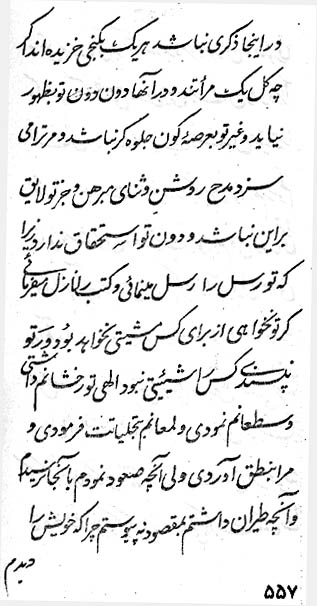 در اینجا ذکری نباشد هر یک بکنجی خزیده اند اگر
چه کل یک مرأتند و در آنها دون دون تو بظهور
نیاید و غیر تو بعرصهٔ کون جلوه گر نباشد و مر ترا می
سزد مدح روشن و ثنای مبرهن و جز تو لایق
بر این نباشد و دون تو استحقاق ندارد زیرا
که تو رسل را رسل مینمائی و کتب را نازل میفرمائی
گر تو نخواهی از برای کس مشیتی نخواهد بود و ور تو
نپسندی کس را شیئیتی نبود الهی تو رخشانم داشتی
و سطعانم نمودی و لمعانم تجلیات فرمودی و
مرا بنطق آوردی ولی آنچه صعود نمودم بآنجا نرسیدم
و آنچه طیران داشتم بمقصود نه پیوستم چرا که خویش را
دیدم
۵۵۷